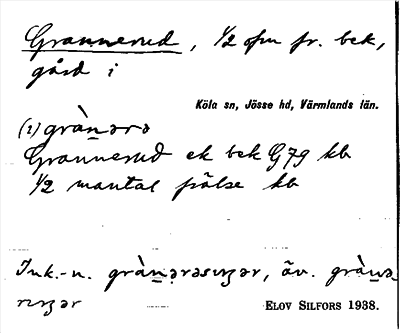 Grannerud, 1/2 ofm fr. bek,
gård i
Köla sn, Jösse hd, Värmlands län.
(i) gràn̲ərə
Grannerud ek bek G79 kb
1/2 mantal frälse kb
Ink.-n. gràn̲ərəsɪŋər, äv. gràn̲ə-
rɪŋər
ELOV SILFORS 1938.